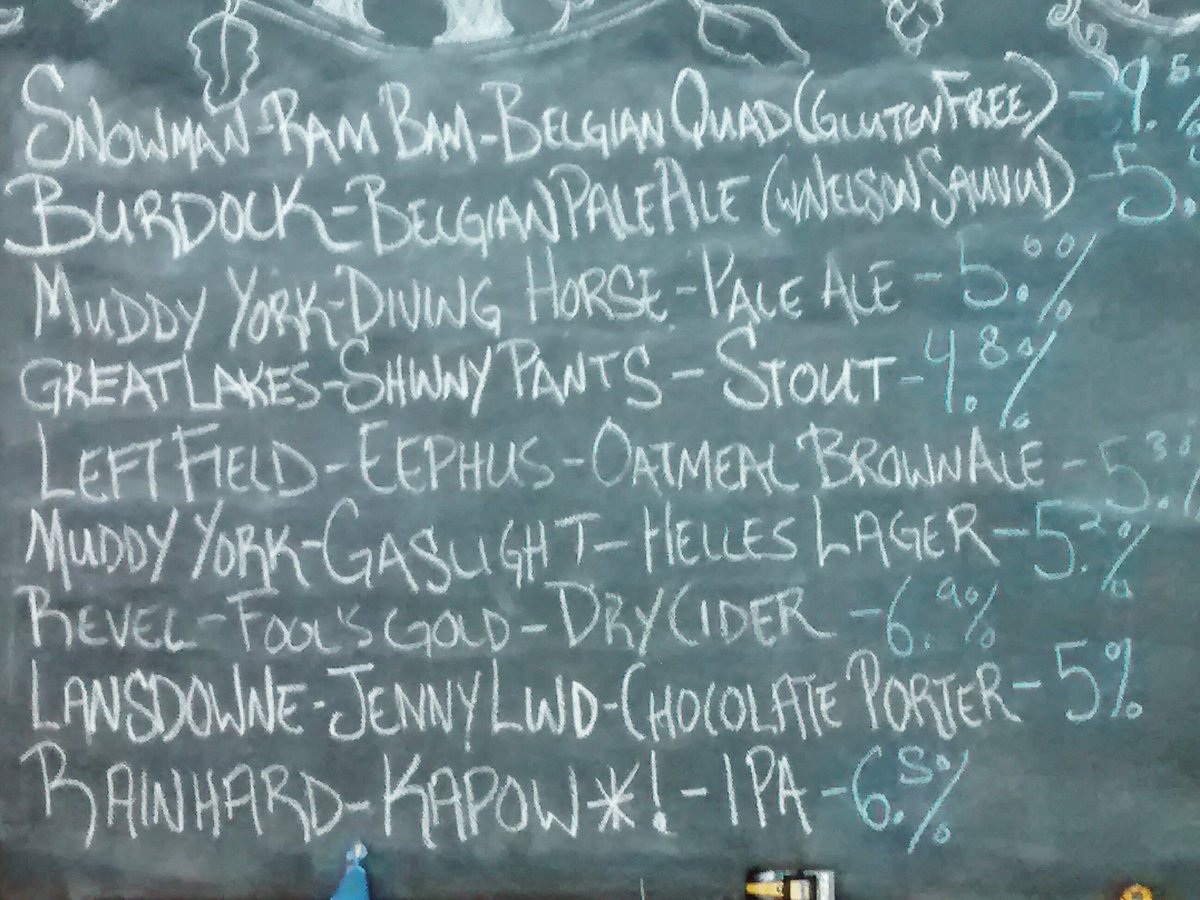 SNOWMAN-RAM BAM-BELGIAN QUAD (GLUTEN FREE) - 9.5%
BURDOCK-BELGIAN PALE ALE (W NELSON SAUVIN) - 5.
MUDDY YORK-DIVING HORSE-PALE ALE - 5.0%
GREAT LAKES-SHINNY PANTS-STOUT - 4.8%
LEFT FIELD-EEPHUS-OATMEAL BROWN ALE - 5.3%
MUDDY YORK-GASLIGHT-HELLES LAGER - 5.2%
REVEL-FOOL'S GOLD-DRY CIDER - 6.9%
LANSDOWNE-JENNY LIND-CHOCOLATE PORTER - 5%
RAINHARD-KAPOW*!-IPA - 6.5%